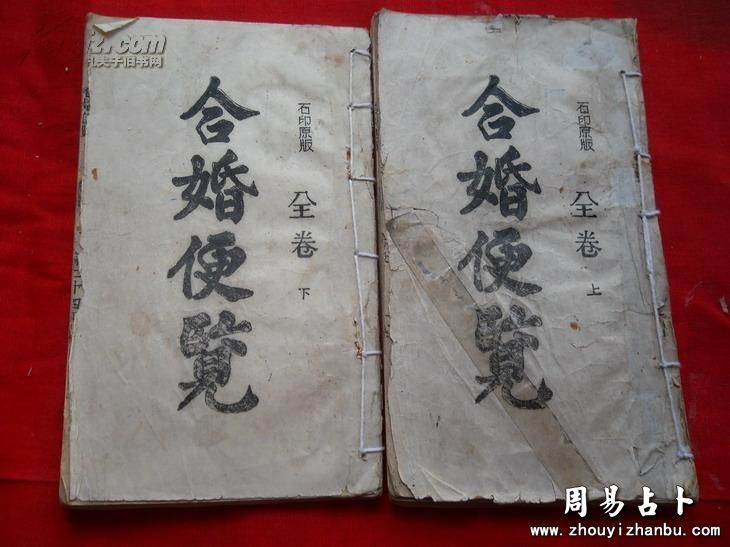 合婚便覽
石印原版
全卷
下
合婚便覽
石印原版
全卷
上
周易占卜
www.zhouyizhanbu.com